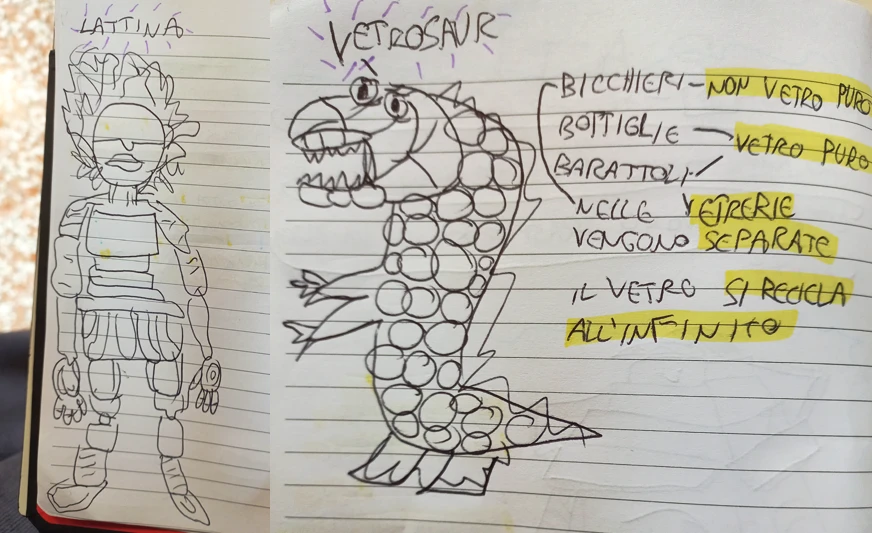 LATTINA
VETROSAUR
BICCHIERI - NON VETRO PURO
BOTTIGLIE - VETRO PURO
BARATTOLI
NELLE VETRERIE
VENGONO SEPARATE
IL VETRO SI RICICLA
ALL'INFINITO